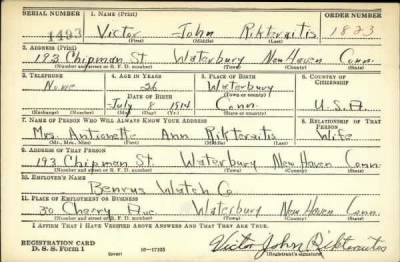 SERIAL NUMBER 1. NAME (Print) ORDER NUMBER
1493 Victor John Rikteraitis 1823
(First) (Middle) (Last)
2. ADDRESS (Print)
193 Chipman St. Waterbury New Haven Conn.
(Number and street or R. F. D. number) (Town) (County) (State)
3. TELEPHONE 4. AGE IN YEARS 5. PLACE OF BIRTH 6. COUNTRY OF CITIZENSHIP
None 26 Waterbury
DATE OF BIRTH (Town or county)
July 8 1914 Conn. U.S.A.
(Mo.) (Day) (Yr.) (State or country)
7. NAME OF PERSON WHO WILL ALWAYS KNOW YOUR ADDRESS 8. RELATIONSHIP OF THAT PERSON
Mrs. Antionette Ann Rikteraitis Wife
(Mr., Mrs., Miss) (First) (Middle) (Last)
9. ADDRESS OF THAT PERSON
193 Chipman St. Waterbury New Haven Conn.
(Number and street or R. F. D. number) (Town) (County) (State)
10. EMPLOYER'S NAME
Benrus Watch Co
11. PLACE OF EMPLOYMENT OR BUSINESS
30 Cherry Ave Waterbury New Haven Conn.
(Number and street or R. F. D. number) (Town) (County) (State)
I AFFIRM THAT I HAVE VERIFIED ABOVE ANSWERS AND THAT THEY ARE TRUE.
REGISTRATION CARD
D. S. S. Form 1 (over) 16—17105 Victor John Rikteraites
(Registrant's signature)